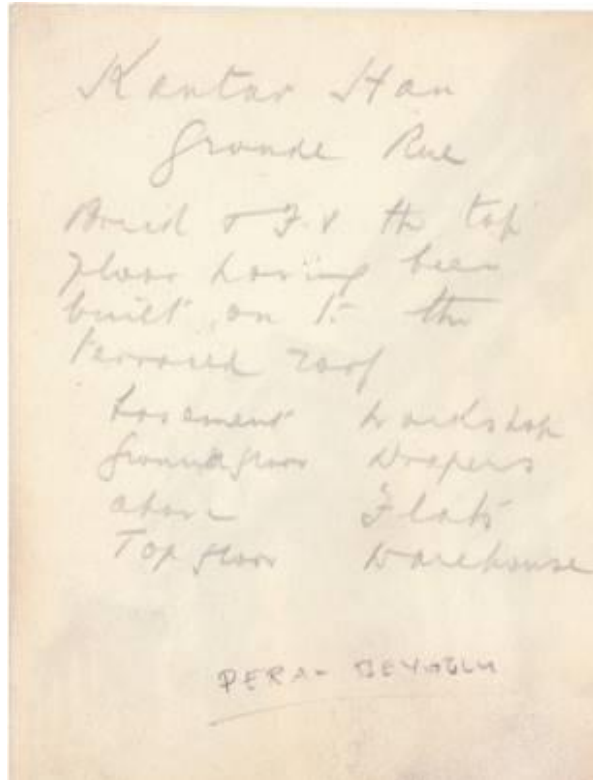 Kantar Han
Grande Rue
the top
floor having been
built on to the
terraced roof
basement
Groundfloor Drapers
above Flats
Top floor Warehouse
PERA - BEYOGLU